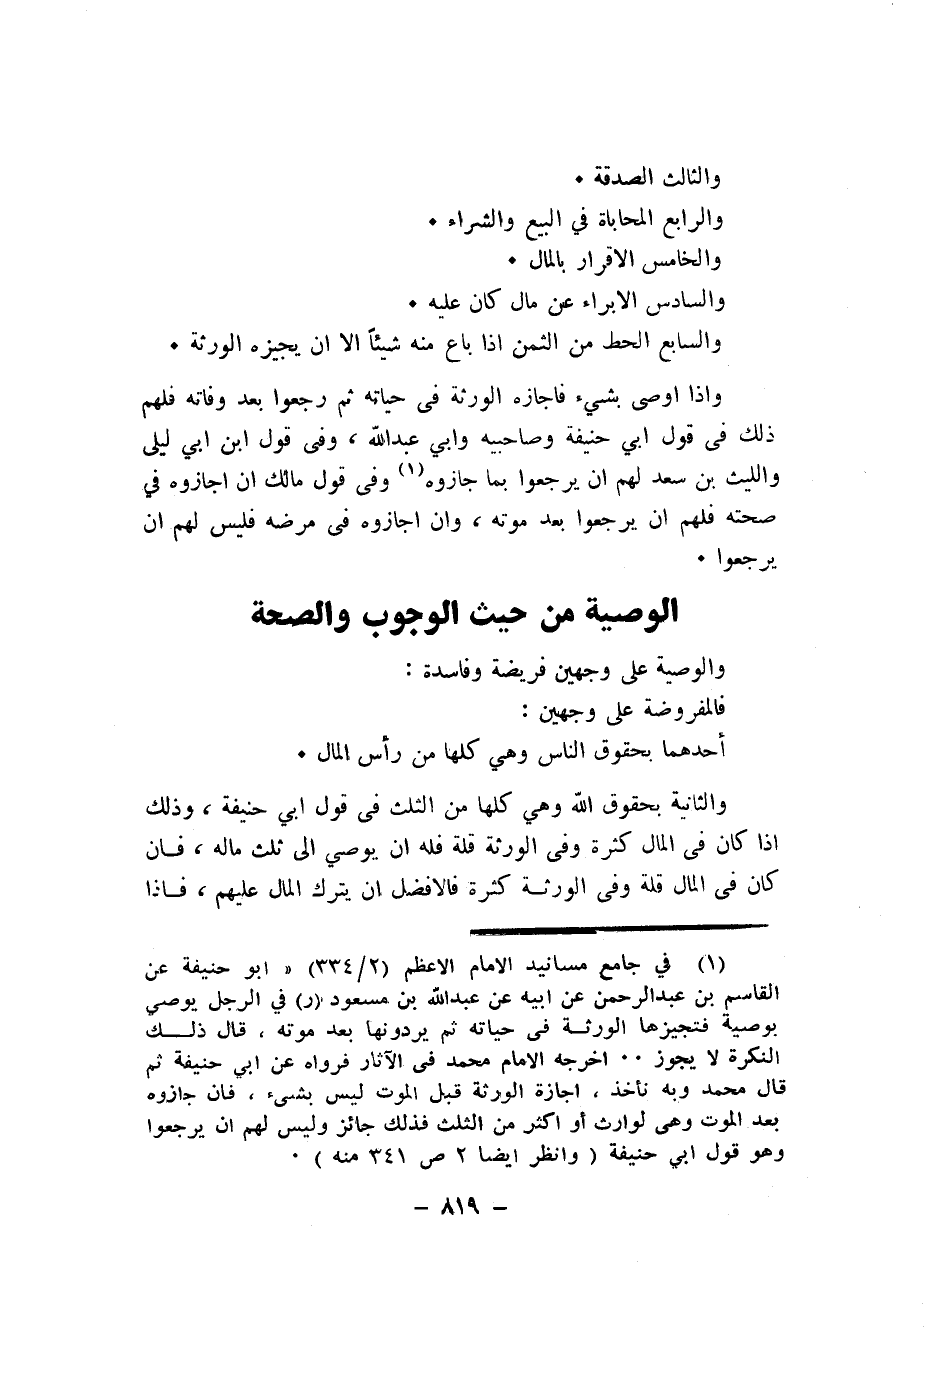 والثالث الصدقة ٠
والرابع المحاباة في البيع والشراء ٠
والخامس الاقرار بالمال ٠
والسادس الابراء عن مال كان عليه ٠
والسابع الحط من الثمن اذا باع منه شيئاً الا ان يجيزه الورثة ٠
واذا اوصى بشيء فاجازه الورثة فى حياته ثم رجعوا بعد وفاته فلهم
ذلك فى قول ابي حنيفة وصاحبيه وابي عبدالله ، وفى قول ابن ابي ليلى
والليث بن سعد لهم ان يرجعوا بما جازوه(١) وفى قول مالك ان اجازوه في
صحته فلهم ان يرجعوا بعد موته ، وان اجازوه فى مرضه فليس لهم ان
يرجعوا ٠
الوصية من حيث الوجوب والصحة
والوصية على وجهين فريضة وفاسدة :
فالمفروضة على وجهين :
أحدهما بحقوق الناس وهي كلها من رأس المال ٠
والثانية بحقوق الله وهي كلها من الثلث فى قول ابي حنيفة ، وذلك
اذا كان فى المال كثرة وفى الورثة قلة فله ان يوصي الى ثلث ماله ، فـان
كان فى المال قلة وفى الورثـة كثرة فالافضل ان يترك المال عليهم ، فـاذا
(١) في جامع مسانيد الامام الاعظم (٣٣٤/٢) « ابو حنيفة عن
القاسم بن عبدالرحمن عن ابيه عن عبدالله بن مسعود (ر) في الرجل يوصي
بوصية فتجيزها الورثـة فى حياته ثم يردونها بعد موته ، قال ذلـــك
النكرة لا يجوز ٠٠ اخرجه الامام محمد فى الآثار فرواه عن ابي حنيفة ثم
قال محمد وبه نأخذ ، اجازة الورثة قبل الموت ليس بشىء ، فان جازوه
بعد الموت وهى لوارث أو اكثر من الثلث فذلك جائز وليس لهم ان يرجعوا
وهو قول ابي حنيفة ( وانظر ايضا ٢ ص ٣٤١ منه ) ٠
– ٨١٩ –